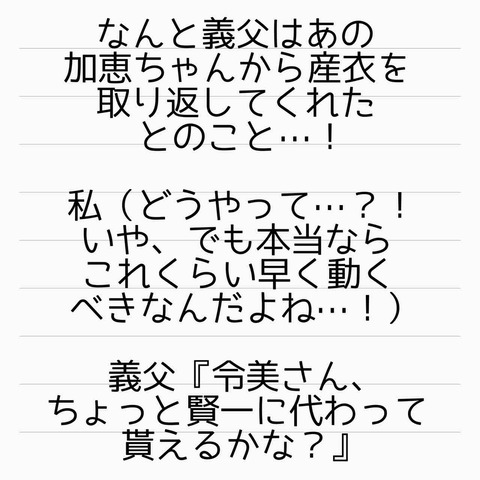 なんと義父はあの
加恵ちゃんから産衣を
取り返してくれた
とのこと…！
私（どうやって…？！
いや、でも本当なら
これくらい早く動く
べきなんだよね…！）
義父『令美さん、
ちょっと賢一に代わって
貰えるかな？』